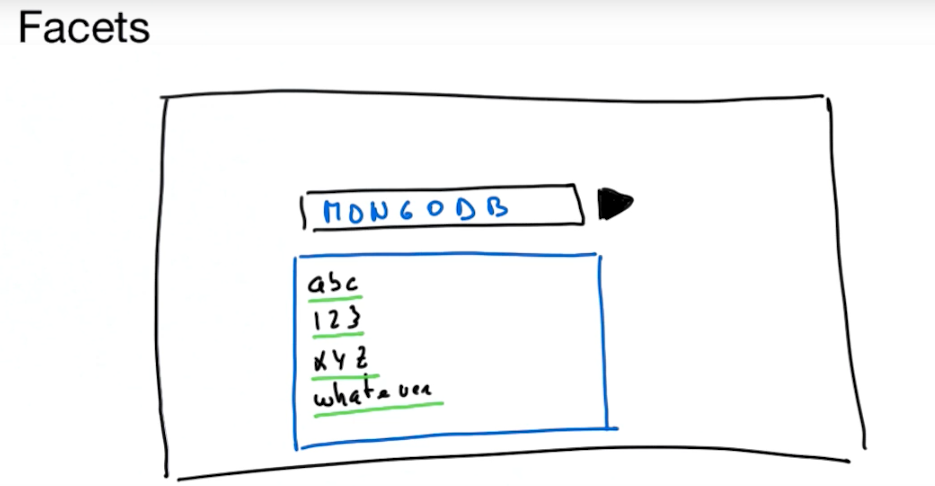 Facets
MONGODB
abc
123
xyz
whatever